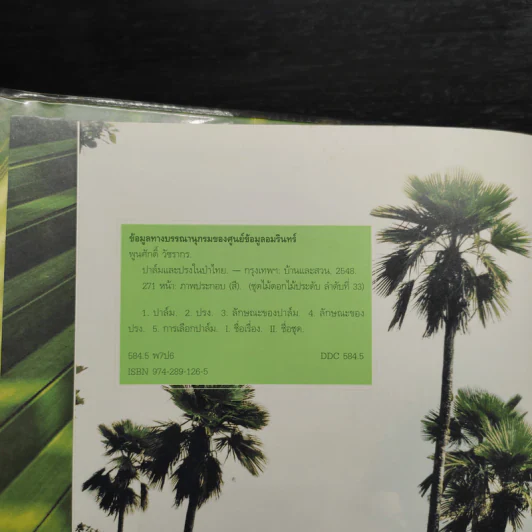 ข้อมูลทางบรรณานุกรมของศูนย์ข้อมูลอมรินทร์
พูนศักดิ์ วัชรากร.
ปาล์มและปรงในป่าไทย. — กรุงเทพฯ: บ้านและสวน, 2548.
271 หน้า: ภาพประกอบ (สี). (ชุดไม้ดอกไม้ประดับ ลำดับที่ 33)
1. ปาล์ม. 2. ปรง. 3. ลักษณะของปาล์ม. 4. ลักษณะของ
ปรง. 5. การเลือกปาล์ม. I. ชื่อเรื่อง. II. ชื่อชุด.
584.5 พ7ป6 DDC 584.5
ISBN 974-289-126-5